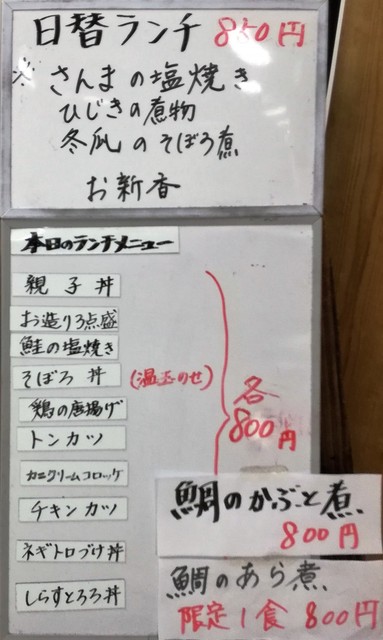 日替ランチ 850円
※ さんまの塩焼き
ひじきの煮物
冬瓜のそぼろ煮
お新香
本日のランチメニュー
親子丼
お造り3点盛
鮭の塩焼き
そぼろ丼 (温玉のせ)
鶏の唐揚げ
トンカツ
カニクリームコロッケ
チキンカツ
ネギトロづけ丼
しらすとろろ丼
各
800円
鯛のかぶと煮
800円
鯛のあら煮
限定1食 800円